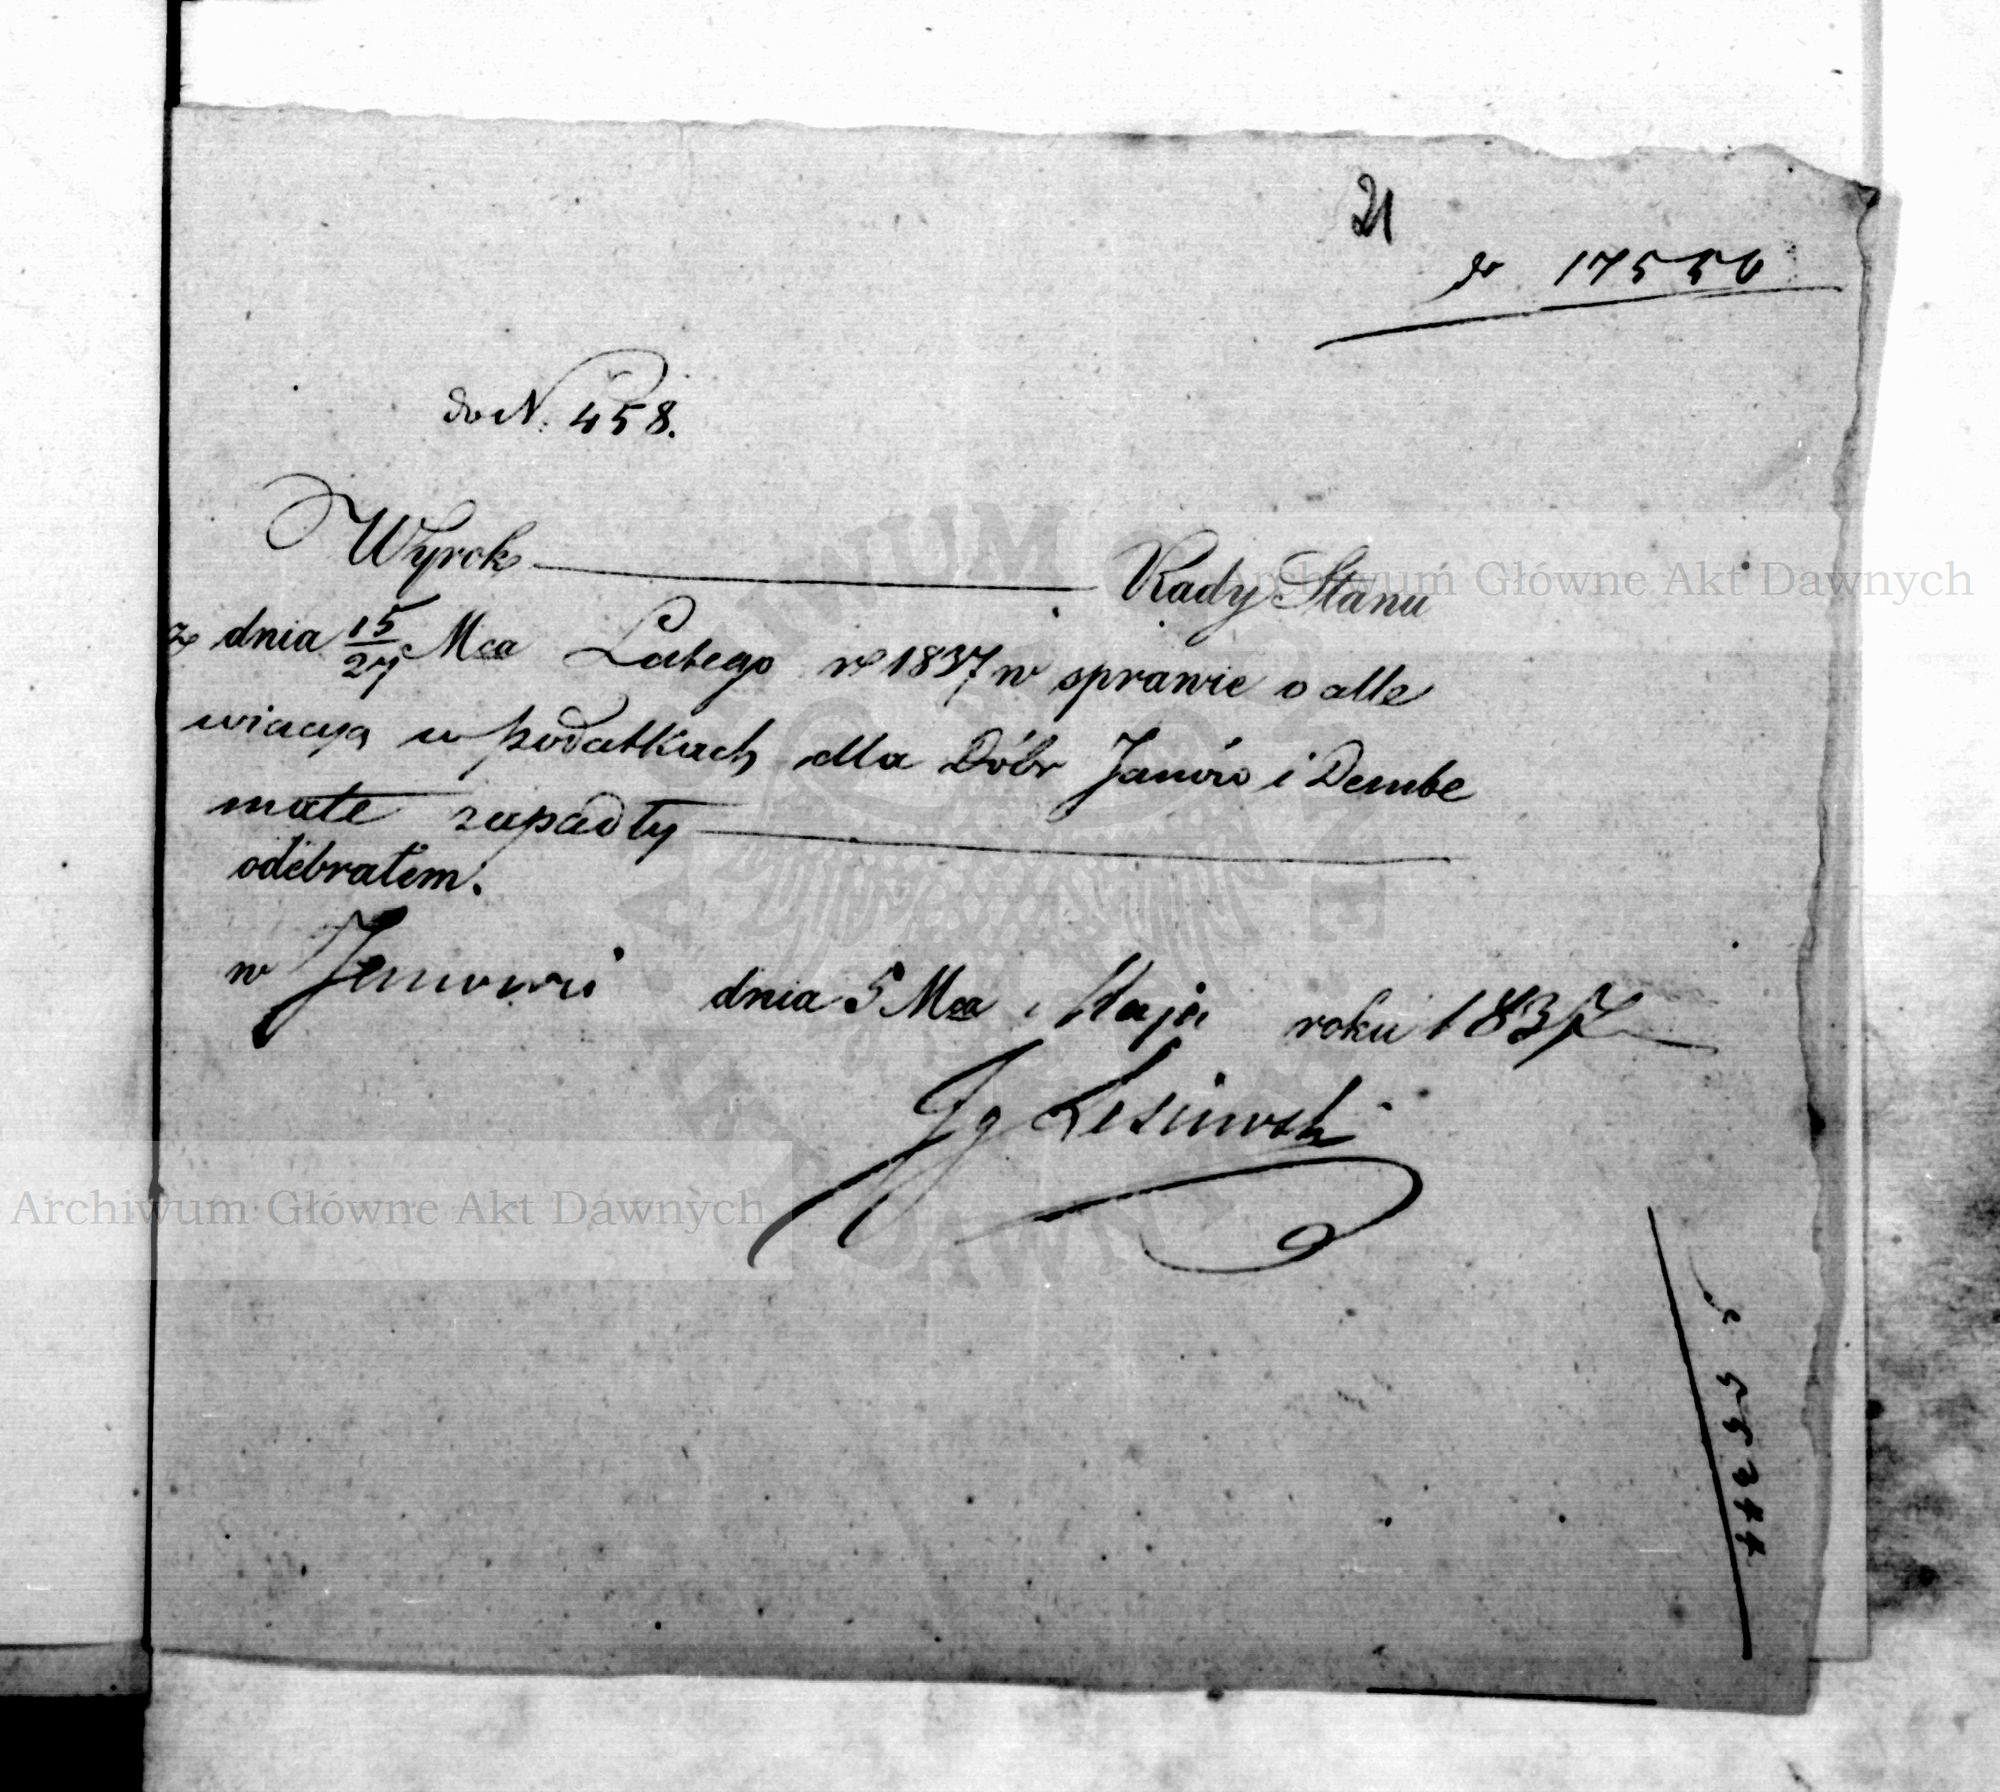 21
do 17550
do N. 458.
Wyrok Rady Stanu
z dnia 15/27 Mca Lutego r. 1837 w sprawie o alle
wiacyą w podatkach dla Dóbr Janów i Dembe
małe zapadły
odebrałem.
w Janowie dnia 5 Mca Maja roku 1837
Ig Lesiewski
Archiwum Główne Akt Dawnych
Archiwum Główne Akt Dawnych